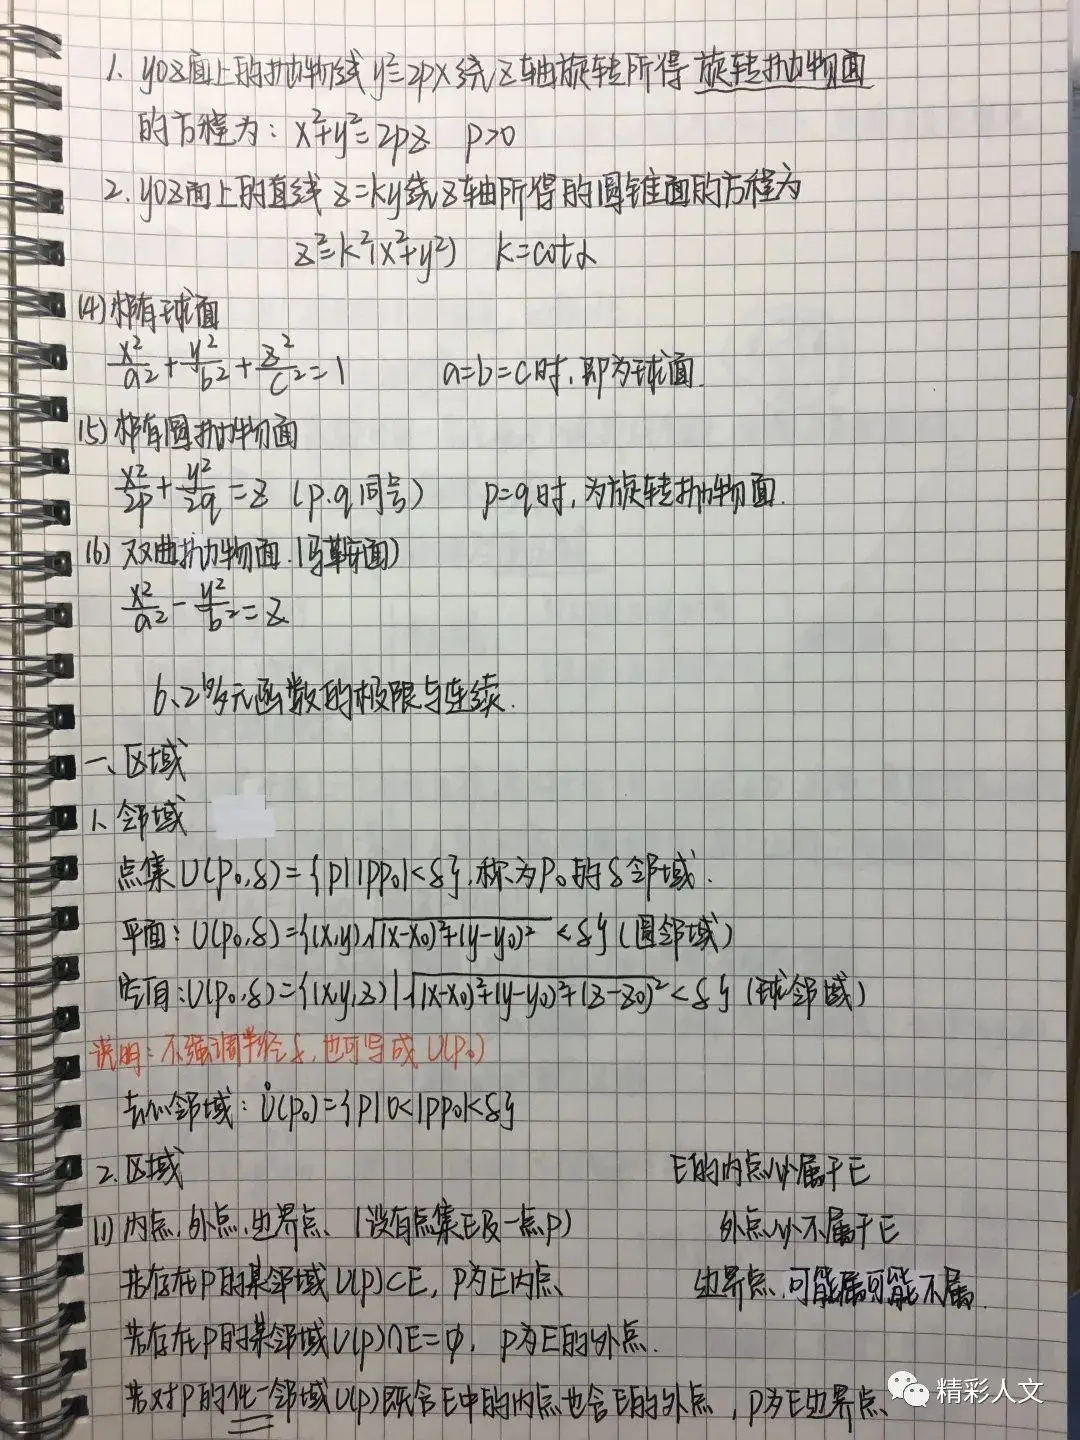 1. yoz面上的抛物线 y²=2px绕z轴旋转所得 旋转抛物面
的方程为: x²+y²=2pz p>0
2. yoz面上的直线 z=ky绕z轴所得的圆锥面的方程为
z²=k²(x²+y²) k=cotα
(4) 椭球面
x²/a²+y²/b²+z²/c²=1 a=b=c时,即为球面.
(5) 椭圆抛物面
x²/2p+y²/2q=z (p.q同号) p=q时,为旋转抛物面.
(6) 双曲抛物面.(马鞍面)
x²/a²-y²/b²=z
6、2 多元函数的极限与连续.
一、区域
1、邻域
点集 U(p₀,δ)={p||pp₀|<δ},称为P₀的δ邻域.
平面: U(p₀,δ)={(x,y),√(x-x₀)²+(y-y₀)² <δ} (圆邻域)
空间:U(p₀,δ)={(x,y,z)|√(x-x₀)²+(y-y₀)²+(z-z₀)²<δ} (球邻域)
说明: 不强调半径δ,也可写成 U(p₀)
去心邻域: Ů(p₀)={p|0<|pp₀|<δ}
2. 区域 E的内点必属于E
(1) 内点.外点.边界点、(设有点集E及一点p) 外点必不属于E
若存在P的某邻域 U(p)⊂E, p为E内点 边界点,可能属可能不属.
若存在p的某邻域U(p)∩E=φ, p为E的外点.
若对P的任一邻域U(p)既含E中的内点也含E的外点,p为E边界点、
精彩人文